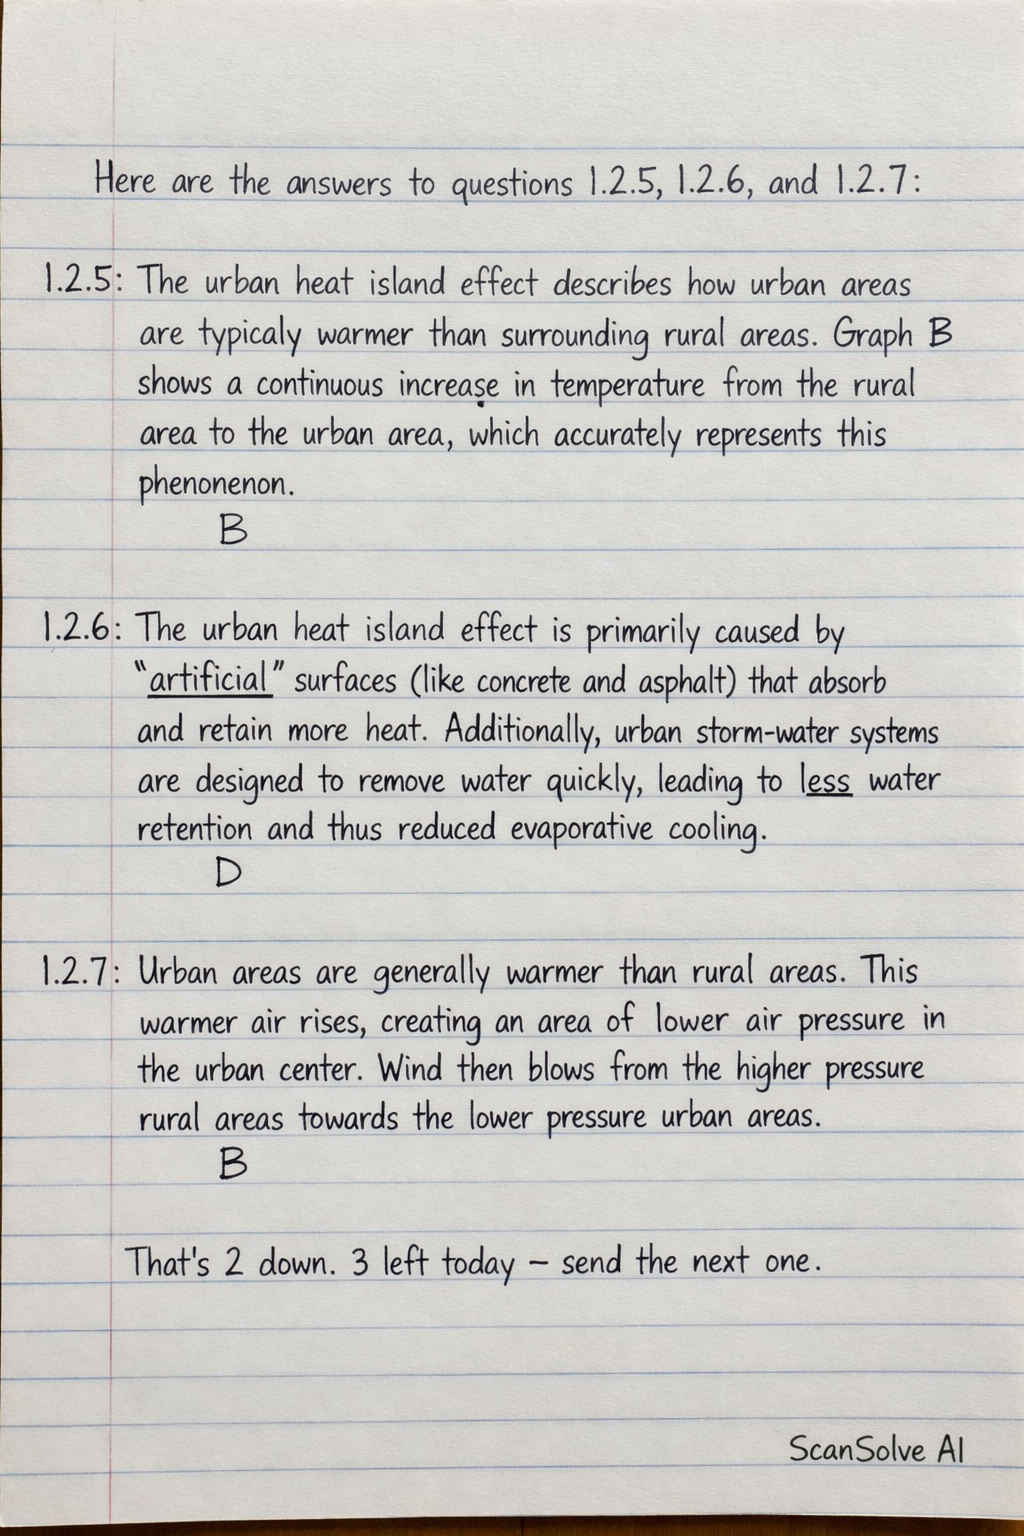 Here are the answers to questions 1.2.5, 1.2.6, and 1.2.7:
1.2.5: The urban heat island effect describes how urban areas
are typicaly warmer than surrounding rural areas. Graph B
shows a continuous increase in temperature from the rural
area to the urban area, which accurately represents this
phenonenon.
B
1.2.6: The urban heat island effect is primarily caused by
"artificial" surfaces (like concrete and asphalt) that absorb
and retain more heat. Additionally, urban storm-water systems
are designed to remove water quickly, leading to less water
retention and thus reduced evaporative cooling.
D
1.2.7: Urban areas are generally warmer than rural areas. This
warmer air rises, creating an area of lower air pressure in
the urban center. Wind then blows from the higher pressure
rural areas towards the lower pressure urban areas.
B
That's 2 down. 3 left today – send the next one.
ScanSolve AI